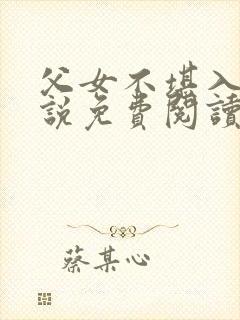 父女不堪入
說免費閱讀
蔡某心